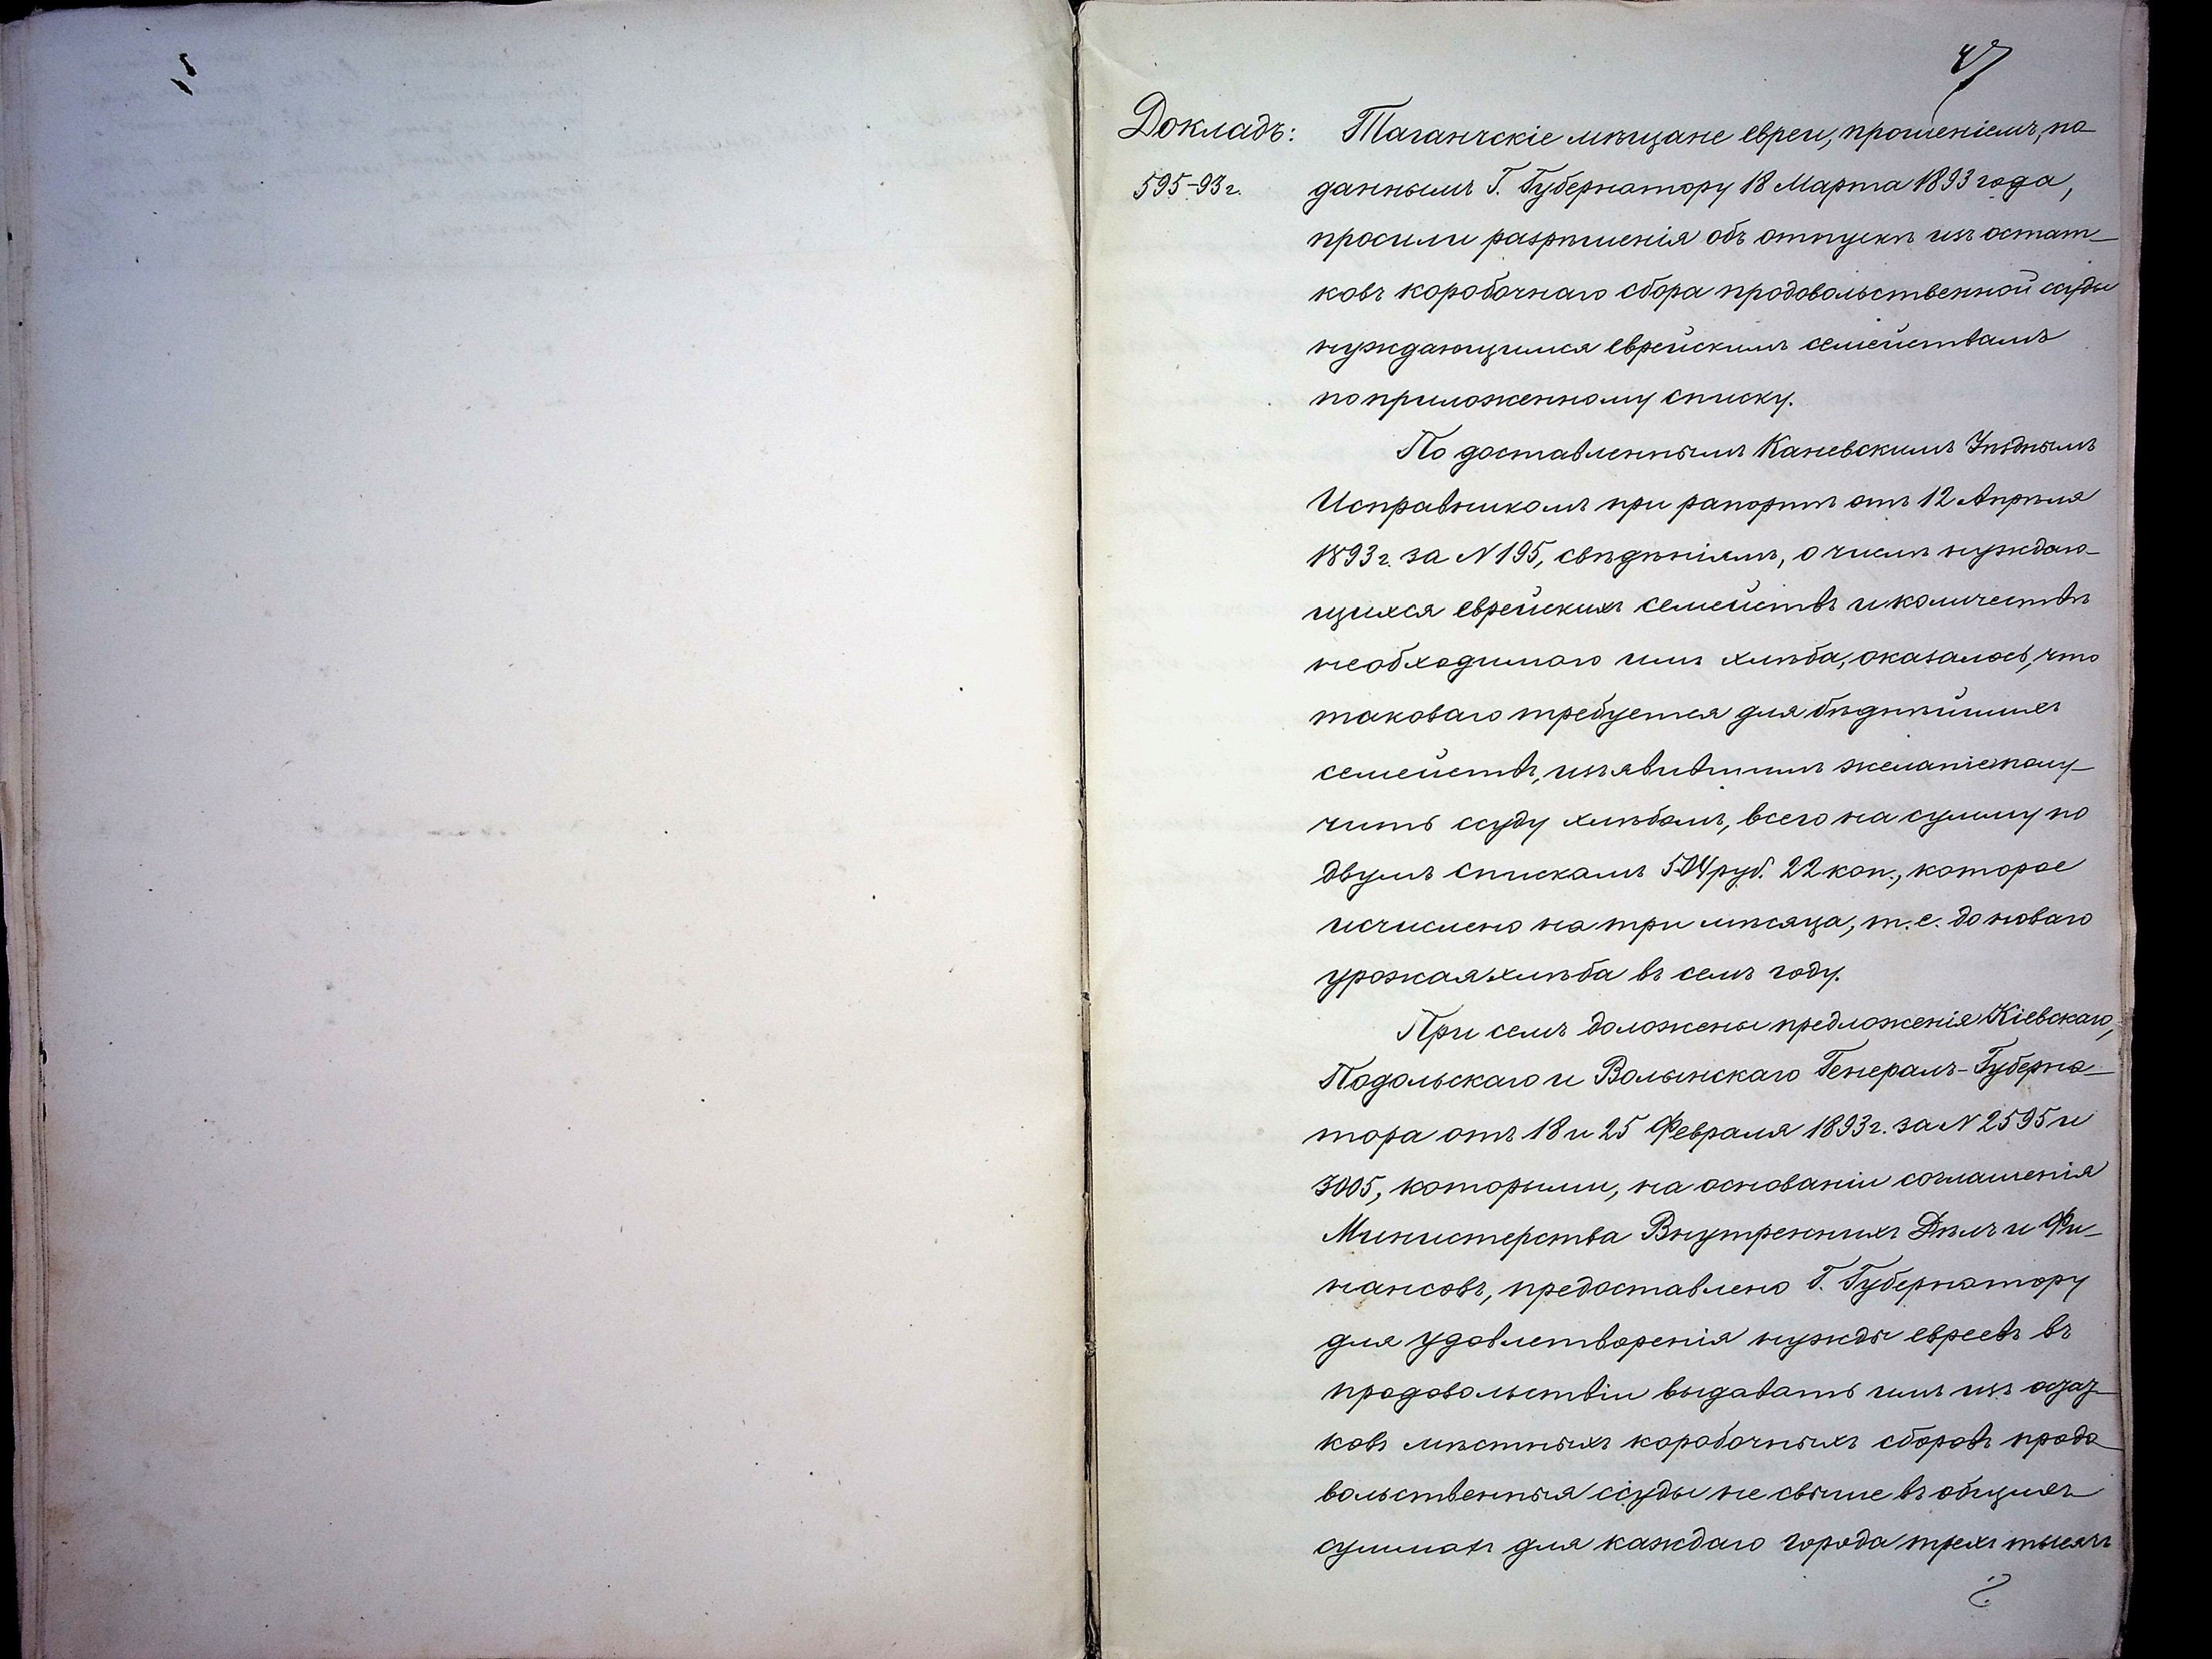 47
Докладъ: Таганчскіе мѣщане евреи, прошеніемъ, по-
595-93 г. даннымъ Г. Губернатору 18 Марта 1893 года,
просили разрѣшенія объ отпускѣ изъ остат-
ковъ коробочнаго сбора продовольственной ссуды
нуждающимся еврейскимъ семействамъ
по приложенному списку.
По доставленнымъ Каневскимъ Уѣзднымъ
Исправникомъ при рапортѣ отъ 12 Апрѣля
1893 г. за N 195, свѣдѣніямъ, о числѣ нуждаю-
щихся еврейскихъ семействъ и количествѣ
необходимаго имъ хлѣба, оказалось, что
таковаго требуется для бѣднѣйшихъ
семействъ, изъявившимъ желаніе полу-
чить ссуду хлѣбомъ, всего на сумму по
двумъ спискамъ 504 руб. 22 коп., которое
исчислено на три мѣсяца, т.е. до новаго
урожая хлѣба въ семъ году.
При семъ доложены предложенія Кіевскаго,
Подольскаго и Волынскаго Генералъ-Губерна-
тора отъ 18 и 25 Февраля 1893 г. за N 2595 и
3005, которыми, на основаніи соглашенія
Министерства Внутреннихъ Дѣлъ и Фи-
нансовъ, предоставлено Г. Губернатору
для удовлетворенія нужды евреевъ въ
продовольствіи выдавать имъ изъ
ковъ мѣстныхъ коробочныхъ сборовъ продо-
вольственныя ссуды не свыше въ общихъ
суммахъ для каждаго города трехъ тысячъ